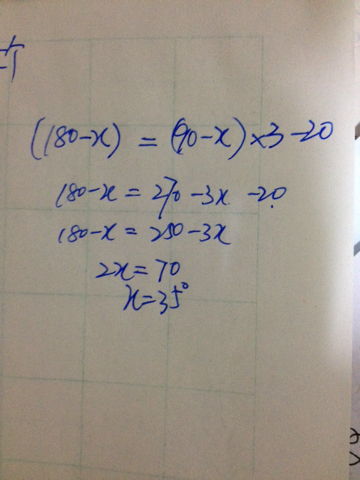 (180-x) = (90-x)×3-20
180-x = 270-3x -20
180-x = 250-3x
2x=70
x=35°